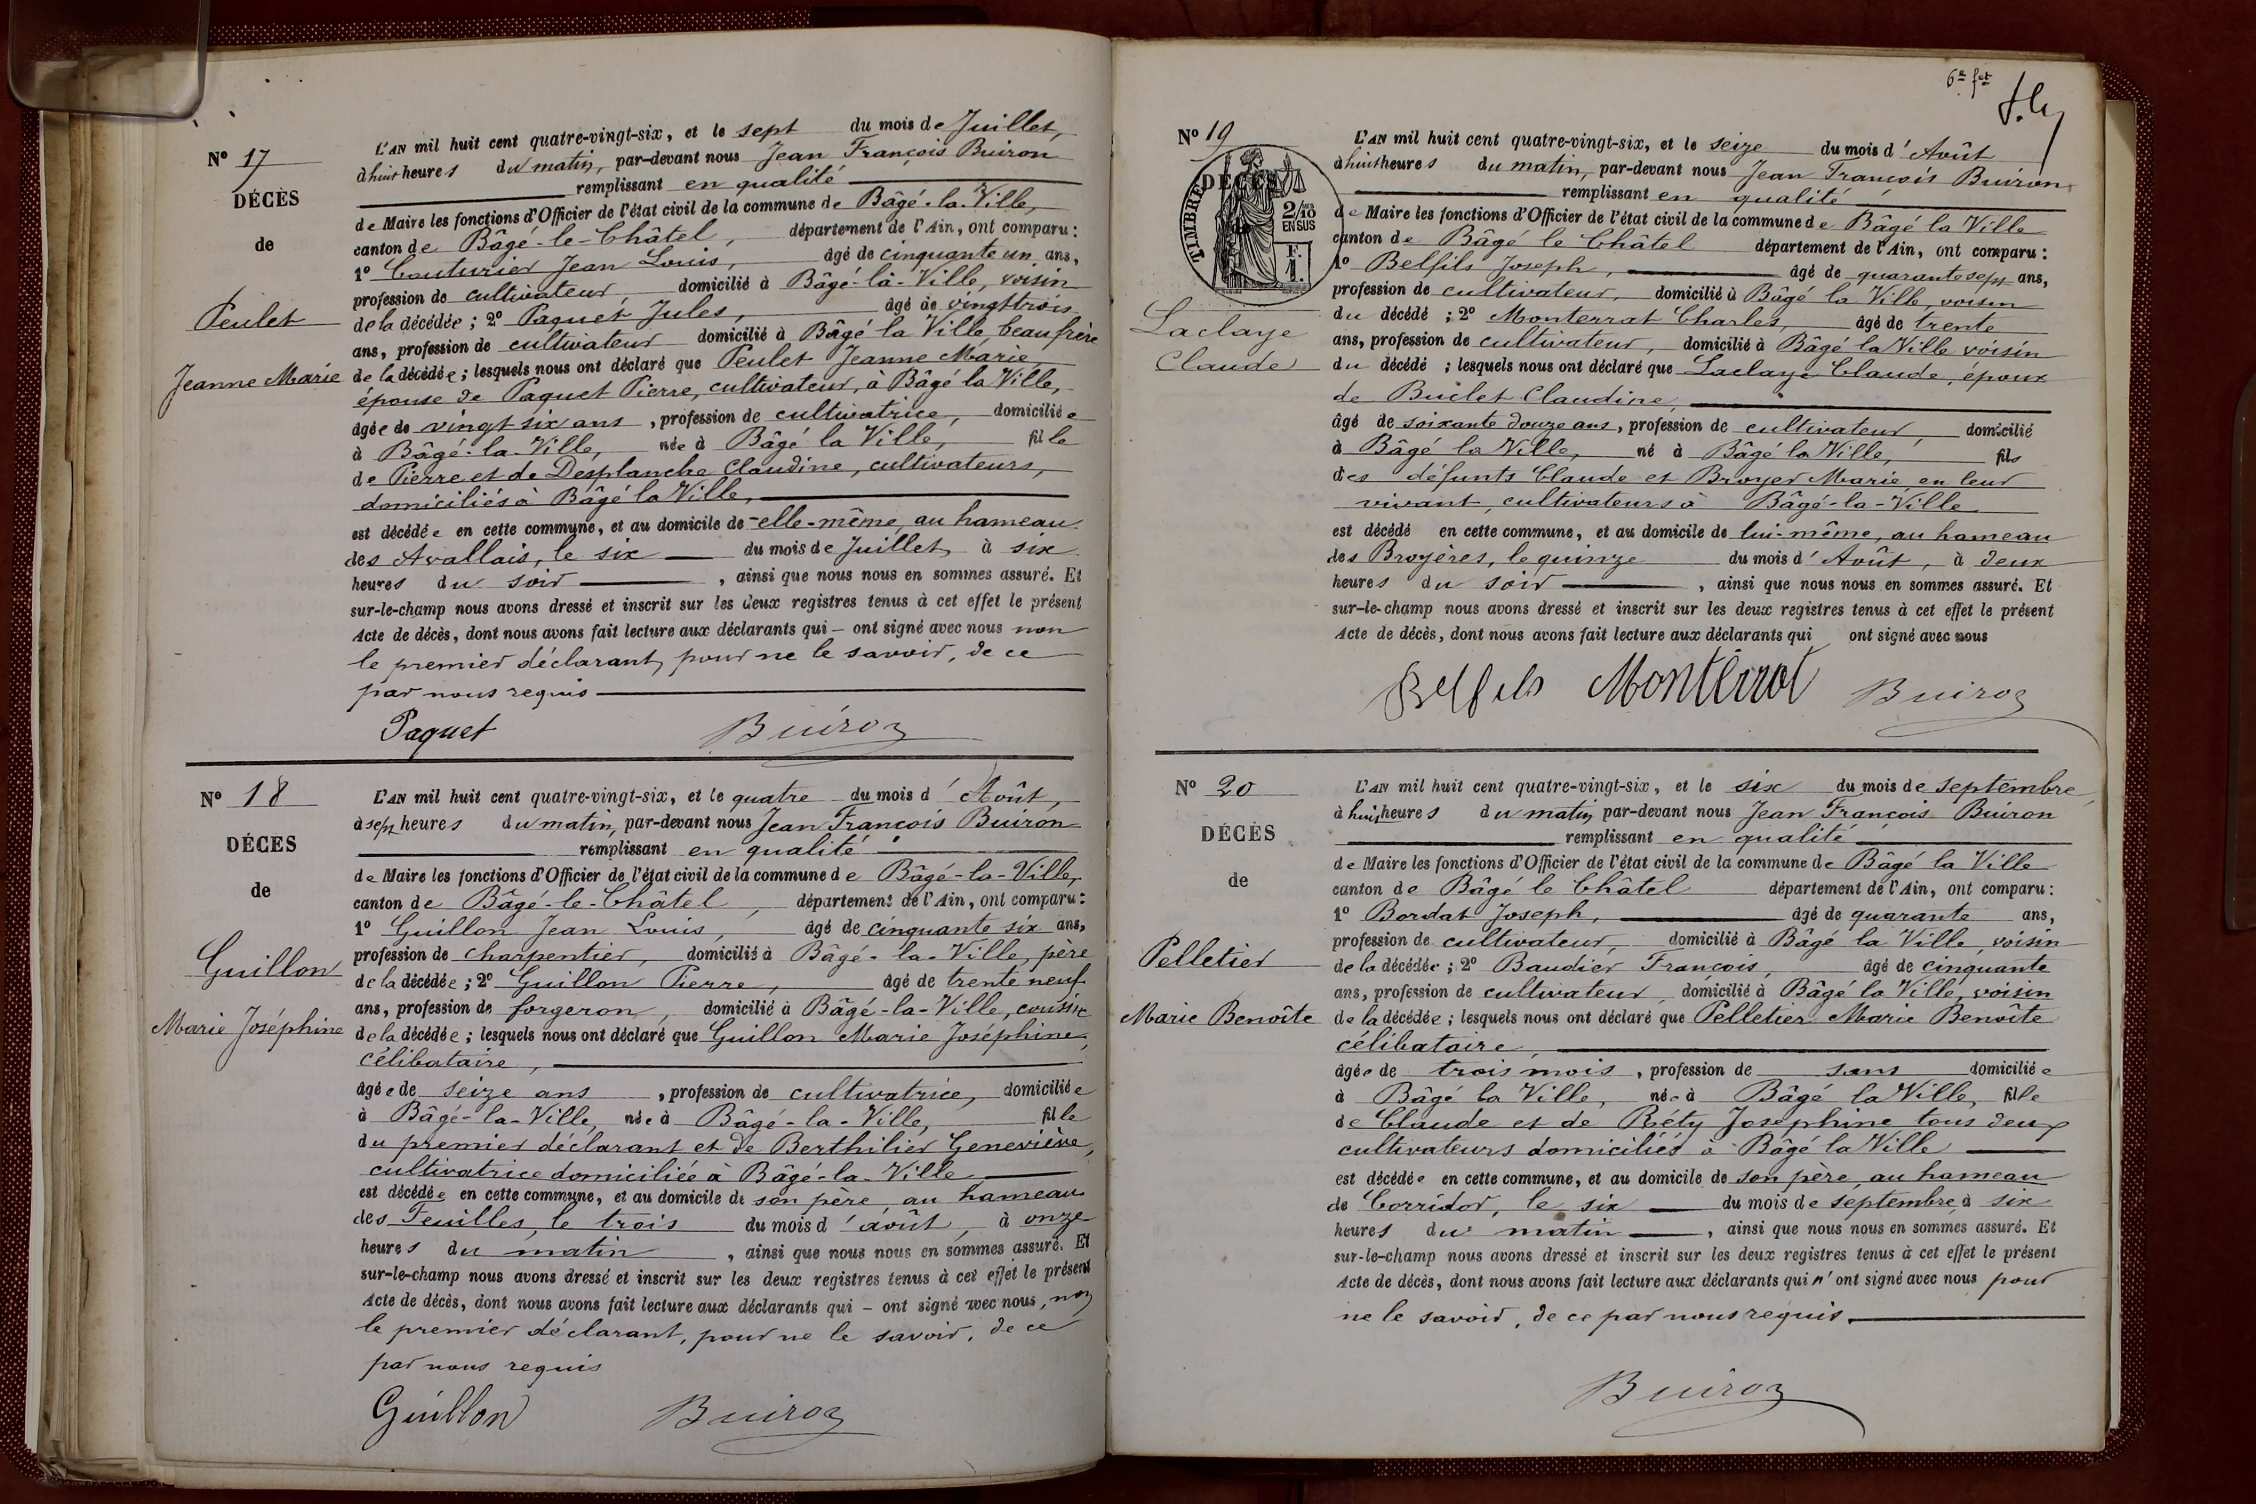 N° 17
DÉCÈS
de
Peulet
Jeanne Marie
L'AN mil huit cent quatre-vingt-six, et le sept du mois de Juillet,
à huit heures du matin, par-devant nous Jean François Buiron
remplissant en qualité
de Maire les fonctions d'Officier de l'état civil de la commune de Bâgé-la-Ville,
canton de Bâgé-le-Châtel, département de l'Ain, ont comparu :
1° Couturier Jean Louis, âgé de cinquante un ans,
profession de cultivateur, domicilié à Bâgé-la-Ville, voisin
de la décédée ; 2° Paquet Jules, âgé de vingt trois
ans, profession de cultivateur domicilié à Bâgé la Ville, beau frère
de la décédée ; lesquels nous ont déclaré que Peulet Jeanne Marie
épouse de Paquet Pierre, cultivateur, à Bâgé la Ville,
âgée de vingt six ans, profession de cultivatrice, domiciliée
à Bâgé-la-Ville, née à Bâgé la Ville, fille
de Pierre et de Desplanche Claudine, cultivateurs,
domiciliés à Bâgé la Ville,
est décédée en cette commune, et au domicile de elle-même, au hameau
des Avallais, le six du mois de Juillet, à six
heures du soir, ainsi que nous nous en sommes assuré. Et
sur-le-champ nous avons dressé et inscrit sur les deux registres tenus à cet effet le présent
Acte de décès, dont nous avons fait lecture aux déclarants qui – ont signé avec nous non
le premier déclarant, pour ne le savoir, de ce
par nous requis
Paquet Buiron
N° 18
DÉCES
de
Guillon
Marie Joséphine
L'AN mil huit cent quatre-vingt-six, et le quatre du mois d'Août,
à sept heures du matin, par-devant nous Jean François Buiron
remplissant en qualité
de Maire les fonctions d'Officier de l'état civil de la commune de Bâgé-la-Ville,
canton de Bâgé-le-Châtel, département de l'Ain, ont comparu :
1° Guillon Jean Louis, âgé de cinquante six ans,
profession de charpentier, domicilié à Bâgé-la-Ville, père
de la décédée ; 2° Guillon Pierre, âgé de trente neuf
ans, profession de forgeron, domicilié à Bâgé-la-Ville, cousin
de la décédée ; lesquels nous ont déclaré que Guillon Marie Joséphine,
célibataire,
âgée de seize ans, profession de cultivatrice, domiciliée
à Bâgé-la-Ville, née à Bâgé-la-Ville, fille
du premier déclarant et de Berthilier Geneviève,
cultivatrice domiciliée à Bâgé-la-Ville
est décédée en cette commune, et au domicile de son père, au hameau
des Feuilles, le trois du mois d'août, à onze
heures du matin, ainsi que nous nous en sommes assuré. Et
sur-le-champ nous avons dressé et inscrit sur les deux registres tenus à cet effet le présent
Acte de décès, dont nous avons fait lecture aux déclarants qui – ont signé avec nous, non
le premier déclarant, pour ne le savoir, de ce
par nous requis
Guillon Buiron
6e fet
N° 19
DÉCÈS
TIMBRE
2/10
EN SUS
F.
1.
Laclaye
Claude
L'AN mil huit cent quatre-vingt-six, et le seize du mois d'Août
à huit heures du matin, par-devant nous Jean François Buiron
remplissant en qualité
de Maire les fonctions d'Officier de l'état civil de la commune de Bâgé la Ville
canton de Bâgé le Châtel département de l'Ain, ont comparu :
1° Belfils Joseph, âgé de quarante sept ans,
profession de cultivateur, domicilié à Bâgé la Ville, voisin
du décédé ; 2° Monterrat Charles, âgé de trente
ans, profession de cultivateur, domicilié à Bâgé la Ville voisin
du décédé ; lesquels nous ont déclaré que Laclaye Claude, époux
de Buclet Claudine,
âgé de soixante douze ans, profession de cultivateur, domicilié
à Bâgé la Ville, né à Bâgé la Ville, fils
des défunts Claude et Broyer Marie, en leur
vivant, cultivateurs à Bâgé-la-Ville
est décédé en cette commune, et au domicile de lui-même, au hameau
des Broyères, le quinze du mois d'Août, à deux
heures du soir, ainsi que nous nous en sommes assuré. Et
sur-le-champ nous avons dressé et inscrit sur les deux registres tenus à cet effet le présent
Acte de décès, dont nous avons fait lecture aux déclarants qui ont signé avec nous
Belfils Monterrat Buiron
N° 20
DÉCÈS
de
Pelletier
Marie Benoîte
L'AN mil huit cent quatre-vingt-six, et le six du mois de septembre,
à huit heures du matin par-devant nous Jean François Buiron
remplissant en qualité
de Maire les fonctions d'Officier de l'état civil de la commune de Bâgé la Ville
canton de Bâgé le Châtel département de l'Ain, ont comparu :
1° Bordat Joseph, âgé de quarante ans,
profession de cultivateur, domicilié à Bâgé la Ville, voisin
de la décédée ; 2° Baudier François, âgé de cinquante
ans, profession de cultivateur, domicilié à Bâgé la Ville, voisin
de la décédée ; lesquels nous ont déclaré que Pelletier Marie Benoîte
célibataire,
âgée de trois mois, profession de sans domiciliée
à Bâgé la Ville, née à Bâgé la Ville, fille
de Claude et de Réty Joséphine tous deux
cultivateurs domiciliés à Bâgé la Ville
est décédée en cette commune, et au domicile de son père, au hameau
de Corridor, le six du mois de septembre, à six
heures du matin, ainsi que nous nous en sommes assuré. Et
sur-le-champ nous avons dressé et inscrit sur les deux registres tenus à cet effet le présent
Acte de décès, dont nous avons fait lecture aux déclarants qui n'ont signé avec nous pour
ne le savoir, de ce par nous requis.
Buiron